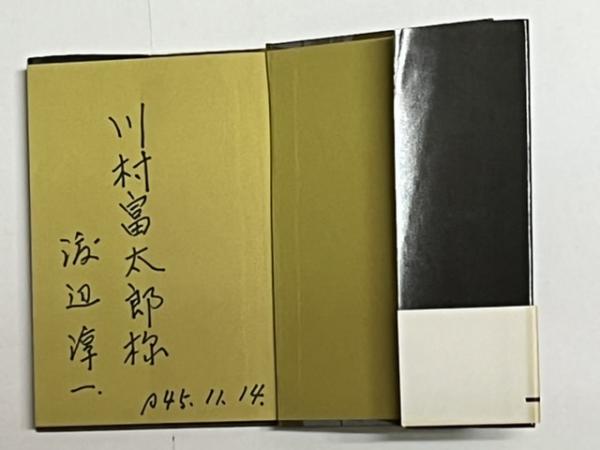 川村富太郎様
渡辺淳一
45.11.14.